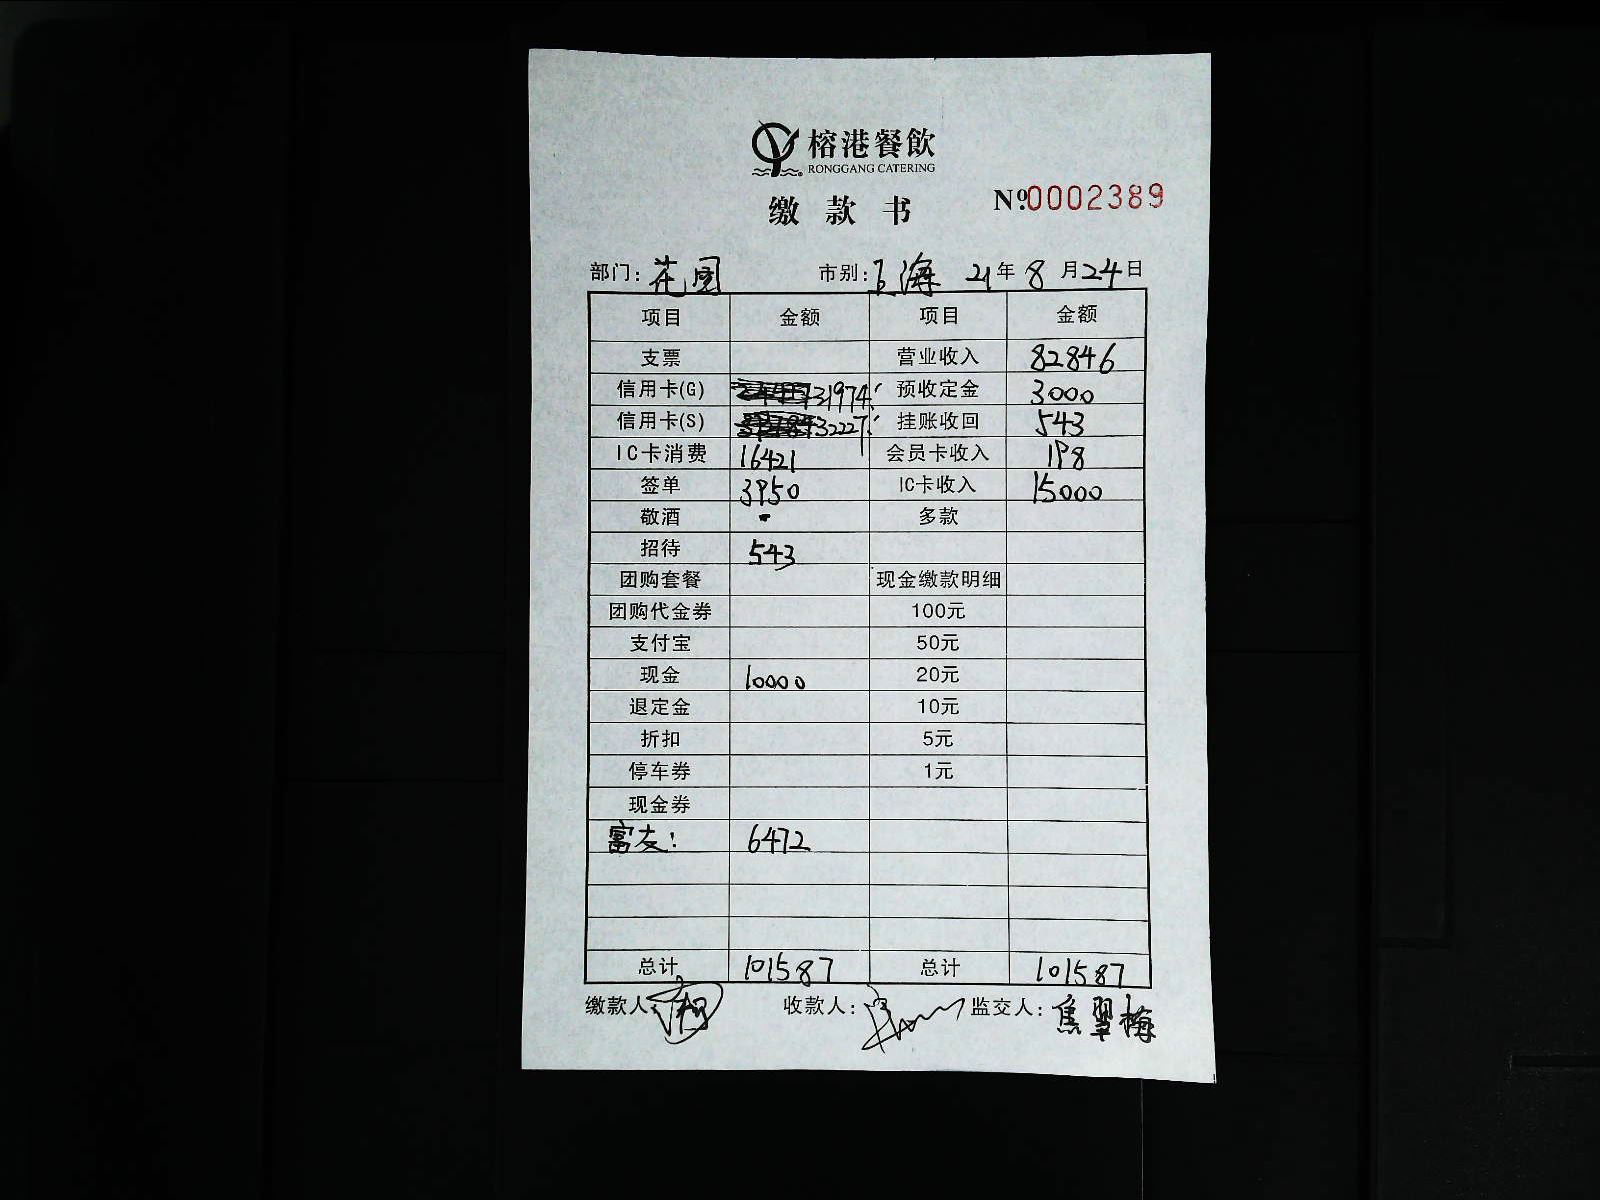 榕港餐飲
RONGGANG CATERING
缴款书 Nº0002389
部门：花园 市别：上海 21年8月24日
项目 金额 项目 金额
支票 营业收入 82846
信用卡(G) 31974 预收定金 3000
信用卡(S) 32227 挂账收回 543
IC卡消费 16421 会员卡收入 198
签单 3950 IC卡收入 15000
敬酒 - 多款
招待 543
团购套餐 现金缴款明细
团购代金券 100元
支付宝 50元
现金 10000 20元
退定金 10元
折扣 5元
停车券 1元
现金券
富友: 6472
总计 101587 总计 101587
缴款人: 收款人: 监交人: 焦翠梅